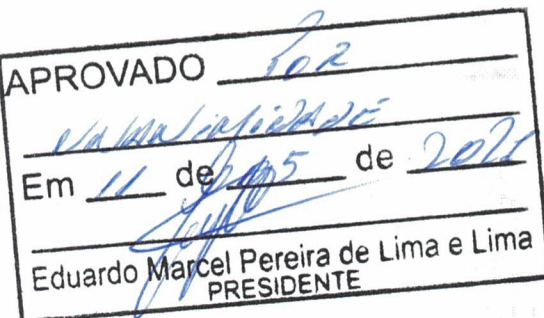 APROVADO POR
Em 11 de 05 de 2021
Eduardo Marcel Pereira de Lima e Lima
PRESIDENTE